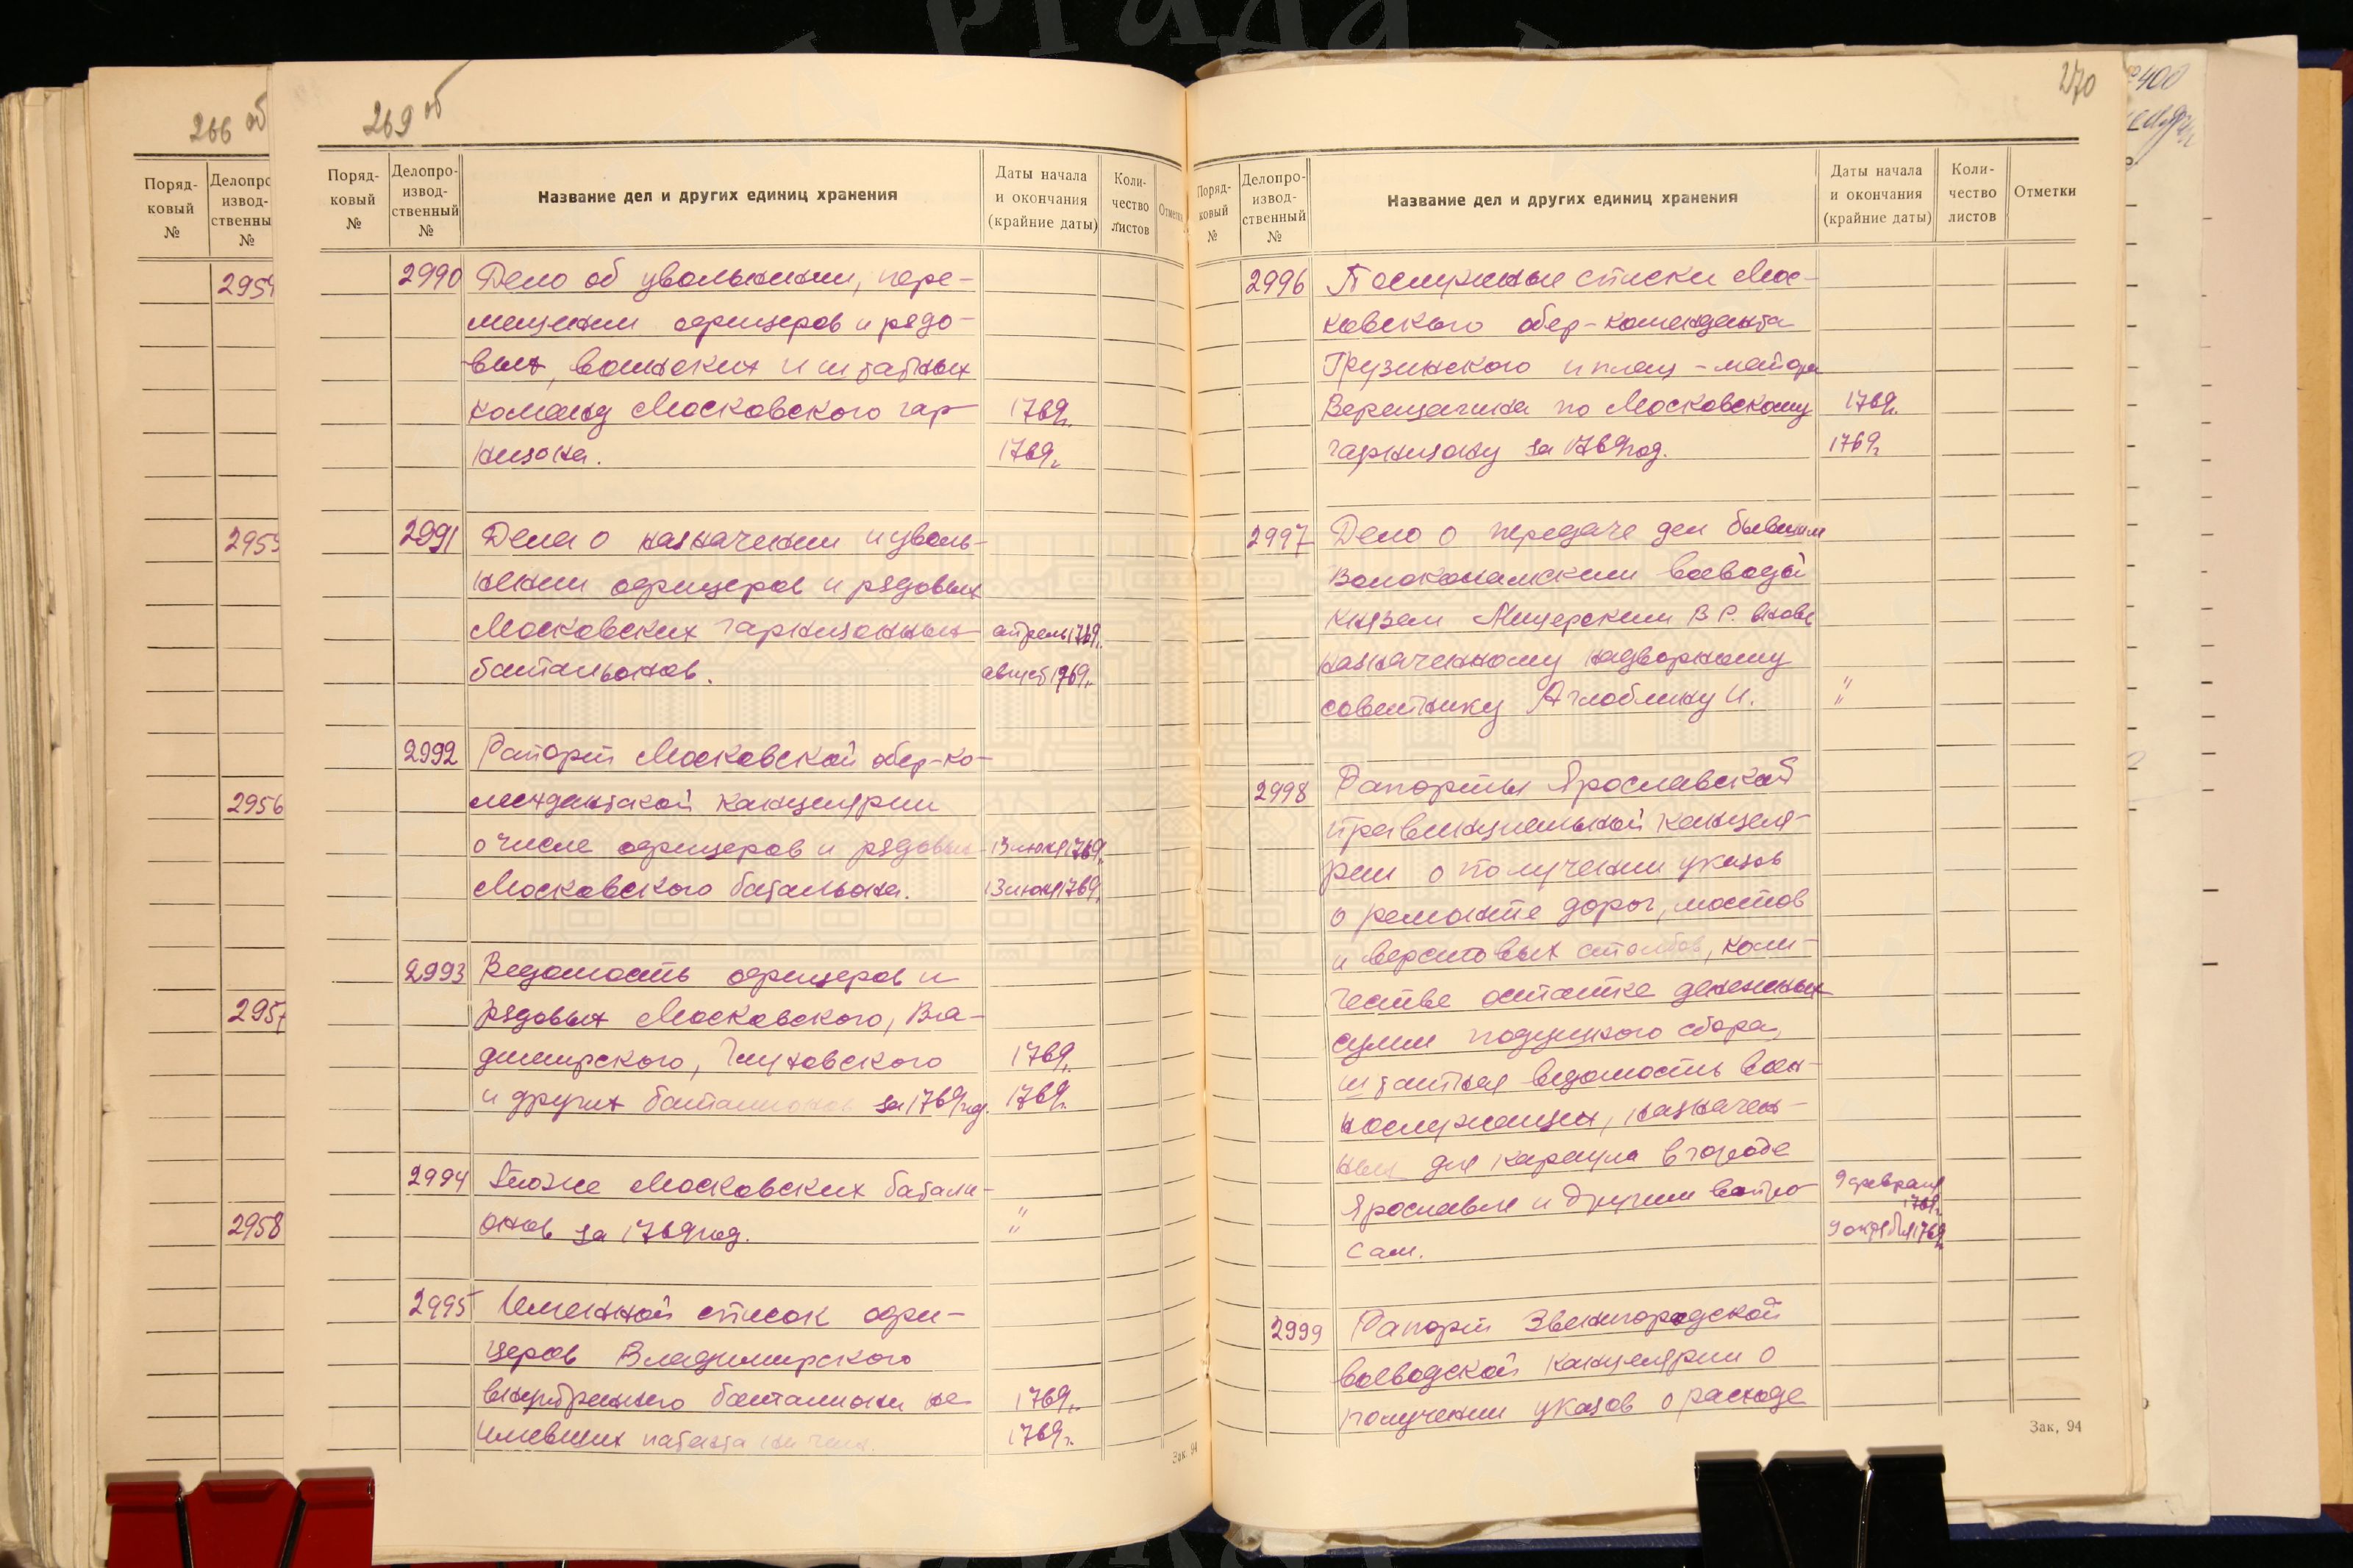 266 об
Поряд-
ковый
№
Делопро
извод-
ственны
№
2955
2956
2957
2958
269 об
Поряд-
ковый
№
Делопро-
извод-
ственный
№
Название дел и других единиц хранения
Даты начала
и окончания
(крайние даты)
Коли-
чество
листов
2990 Дело об увольнении, пере-
мещении офицеров и рядо-
вых, воинских и штатных
команд Московского гар- 1769г.
низона. 1769г.
2991 Дела о назначении и уволь-
нении офицеров и рядовых
Московских гарнизонных апрель 1769г.
баттальонов. август 1769г.
2992 Рапорт Московской обер-ко-
мендантской канцелярии
о числе офицеров и рядовых 13 июня 1769г.
Московского батальона. 13 июня 1769г.
2993 Ведомость офицеров и
рядовых Московского, Вла-
димирского, Глуховского 1769г.
и других батталионов за 1769 год. 1769г.
2994 Тоже Московских батали-
онов за 1769 год. "
2995 Именной список офи-
церов Владимирского
внутреннего батталиона не 1769г.
имевших патента на чин. 1769г.
Зак. 94
270
Поряд-
ковый
№
Делопро-
извод-
ственный
№
Название дел и других единиц хранения
Даты начала
и окончания
(крайние даты)
Коли-
чество
листов
Отметки
2996 Послужные списки Мос-
ковского обер-коменданта
Грузинского и плац-майора
Верещагина по Московскому 1769г.
гарнизону за 1769 год. 1769г.
2997 Дело о передаче дел бывшим
Волоколамским воеводой
князем Мещерским В Р. вновь
назначенному надворному
советнику Аглоблину И. "
2998 Рапорты Ярославской
правинциальной канцеля-
рии о получении указов
о ремонте дорог, мостов
и верстовых столбов, коли-
честве остатке денежных
сумм подушного сбора,
штатная ведомость воен-
нослужащих, назначен-
ных для караула в городе
Ярославле и другим вопро- 9 февраля
1769г.
сам. 9 октября 1769г.
2999 Рапорт Звенигородской
воеводской канцелярии о
получении указов о расходе
Зак. 94